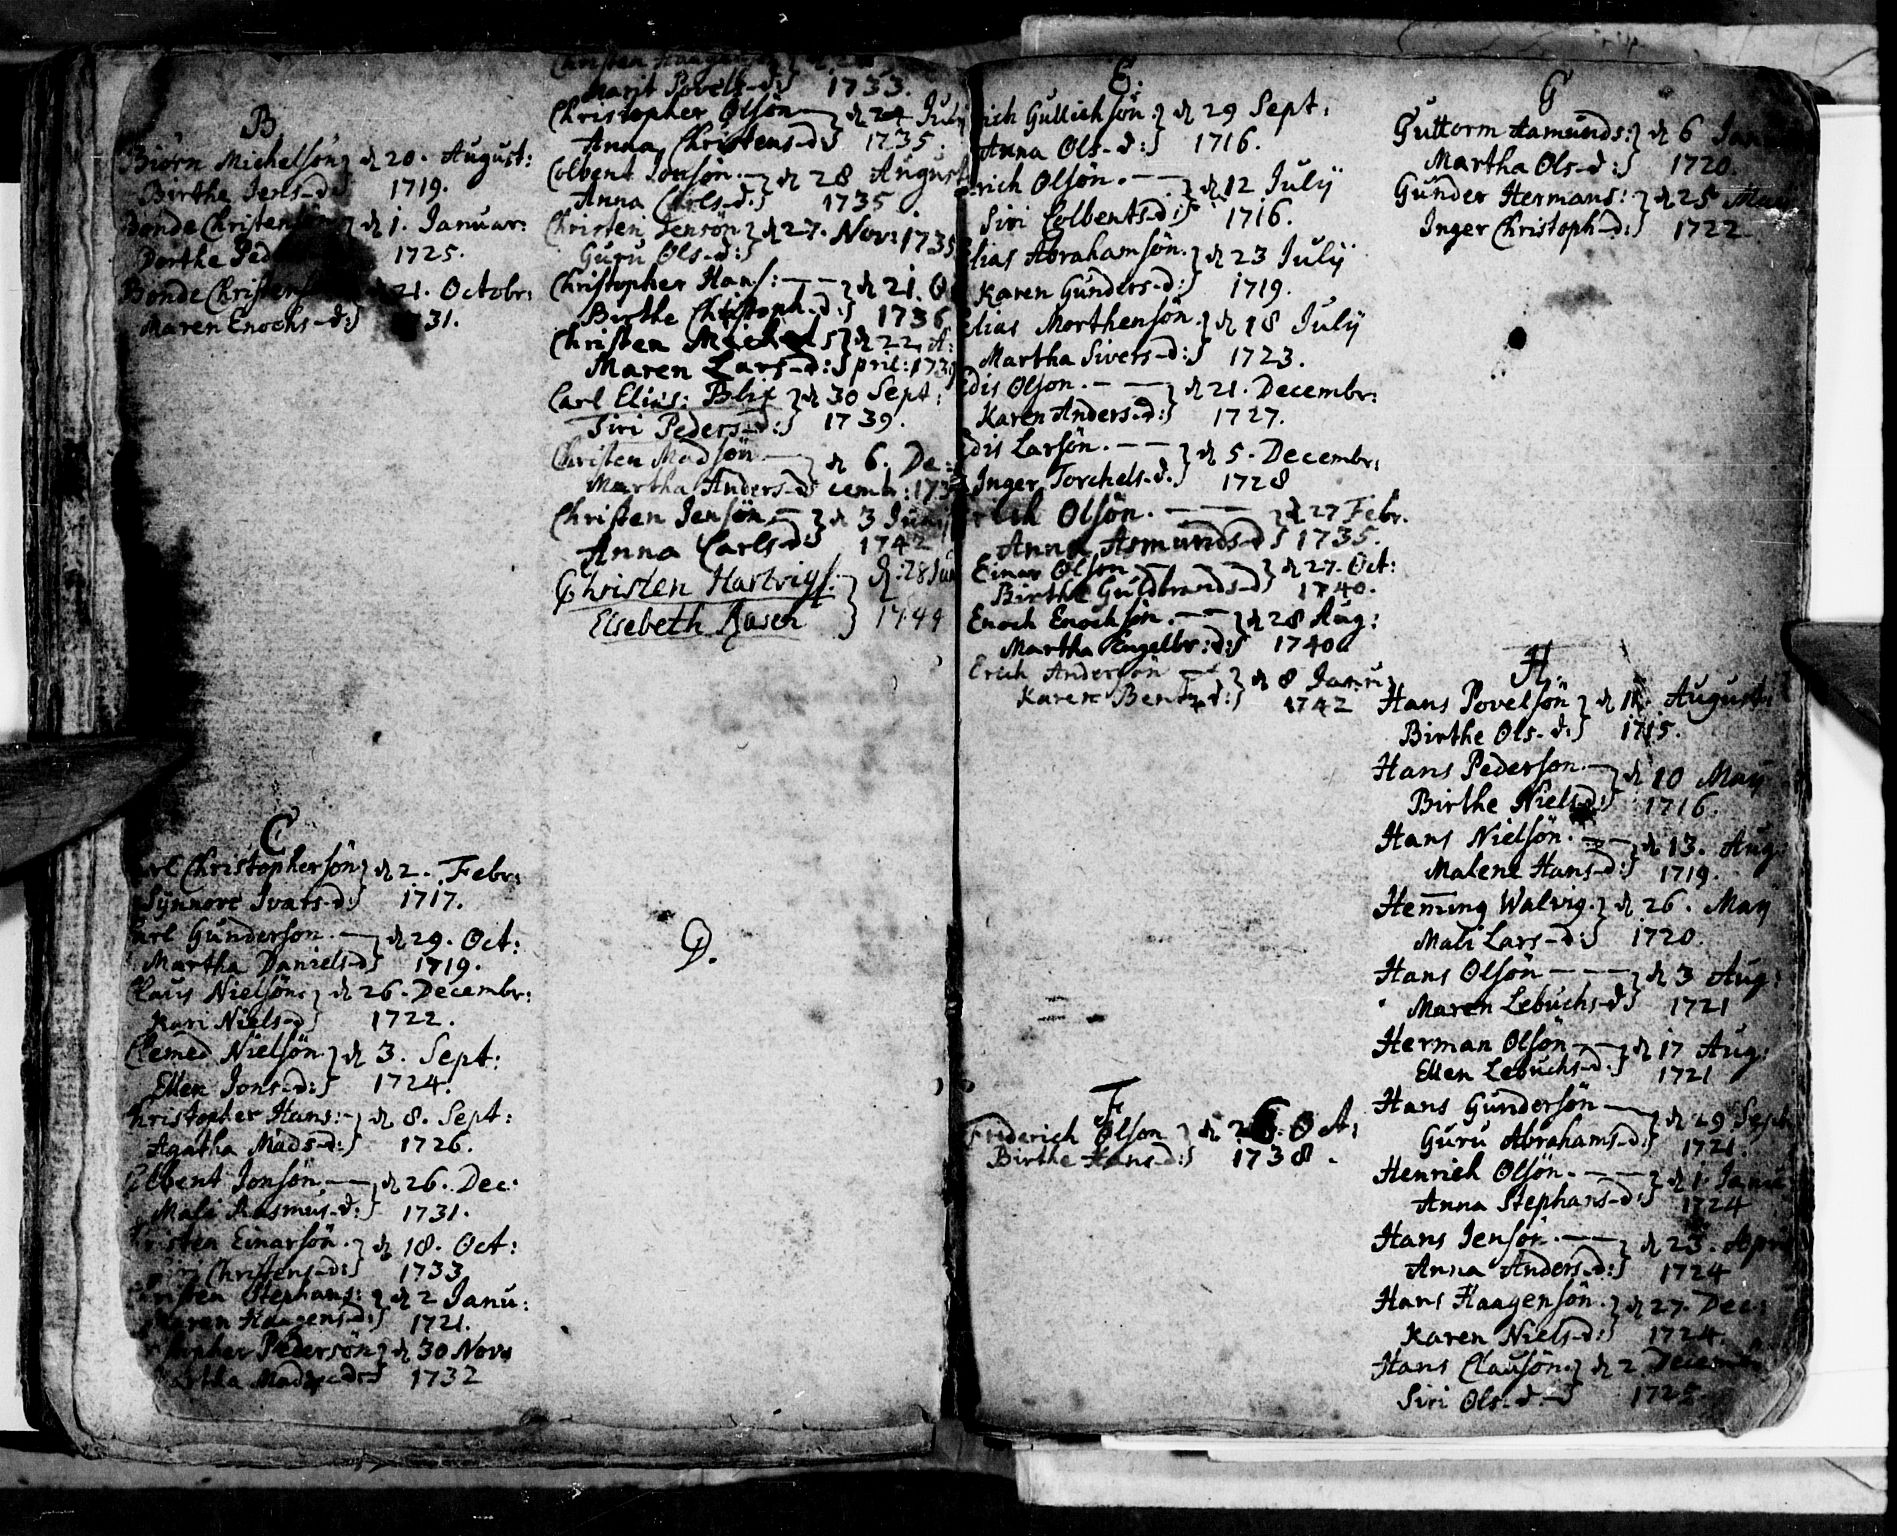 B
Biörn Michelsön } d 20. August:
Birthe Jerls-d:} 1719.
Bonde Christensön } d 1. Januar:
Dorthe Ped 1725.
Bonde Christens 21. Octobr:
Maren Enochs-d:} 31.
C
Christophersön } d 2. Febr:
Synnove Ivars-d:} 1717.
Gunderson. — } d 29. Oct:
Martha Daniels-d} 1719.
Claus Nielsön: } d 26. Decembr:
Kari Niels-d} 1722.
Clemed Nielsön. } d 3. Sept:
Ellen Jons-d:} 1724.
Christopher Hans: } d 8. Sept:
Agatha Mads-d:} 1726.
Colbent Jonsön — } d 26. Dec:
Mali Rasmus-d:} 1731.
Einarsön. } d 18. Oct:
Christens-d:} 1733
Stephans: } d 2 Janu:
Maren Haagens-d:} 1721.
Pedersön } d 30 Nov:
1732
Christen Haagens
Marit Povels-d:} 1733.
Christopher Olsön — } d 24 July
Anna Christens-d:} 1735.
Colbent Jonsön. — } d 28 August
Anna Carls-d:} 1735
Christen Jensön } d 27. Nov: 1735
Guru Ols-d:}
Christopher Hans: — — } d 21. O
Birthe Christoph-d:} 1736
Christen Michels } d 22 A:
Maren Lars-d:} pril: 173
Carl Elias: Blix } d 30 Sept:
Siri Peders-d:} 1739.
Christen Madsön — } d 6. De:
Martha Anders-d cembr: 173
Christen Jensön. — } d 3 Juny
Anna Carls-d:} 1742
Christen Hartvigs: } d: 28 Jun
Elsebeth Aasen } 1744
D.
E.
Erich Gullichsön. } d 29 Sept:
Anna Ols-d:} 1716.
Erich Olsön. — — } d 12 July
Siri Colbents-d:} 1716.
Elias Abrahamsön. } d 23 July
Karen Gunders-d:} 1719.
Elias Morthensön. } d 18 July
Martha Sivers-d:} 1723.
Edis Olson. — — } d 21. Decembr:
Karen Anders-d:} 1727.
Edis Larsön. — — } d 5. Decembr:
Inger Torchels-d.} 1728
Olsön. — — } d 27 Febr.
Anna Asmunds-d} 1735.
Einar Olson — — } d 27. Oct:
Birthe Guldbrands-d} 1740.
Enoch Enochsön. — — } d 28 Aug:
Martha Engelbr:d:} 1740
Erich Andersön — } d 8 Janu:
Karen Bents-d:} 1742
F
Friderich Olson } d 26. Oct:
Birthe Hans-d:} 1738.
G
Guttorm Aamunds: } d 6 Jan
Martha Ols-d:} 1720.
Gunder Hermans: } d 25 May
Inger Christoph-d:} 1722.
H.
Hans Povelsön } d 11. August:
Birthe Ols-d:} 1715.
Hans Pederson. — } d 10 May
Birthe Niels-d:} 1716.
Hans Nielsön. — — } d 13. Aug:
Malene Hans-d:} 1719.
Heming Walvig. } d 26. May
Mali Lars-d:} 1720.
Hans Olsön — — — } d 3 Aug:
Maren Lebuchs-d} 1721
Herman Olsön — — } d 17 Aug:
Ellen Lebuchs-d:} 1721
Hans Gundersön — } d 29 Sept:
Guru Abrahams-d:} 1721.
Henrich Olsön. — — } d 1. Janu:
Anna Stephans-d:} 1724
Hans Jensön. — — } d 23. April
Anna Anders-d:} 1724
Hans Haagensön. } d 27. Dec:
Karen Niels-d:} 1724.
Hans Clausön. } d 2. Decembr
Siri Ols-d.-} 1725